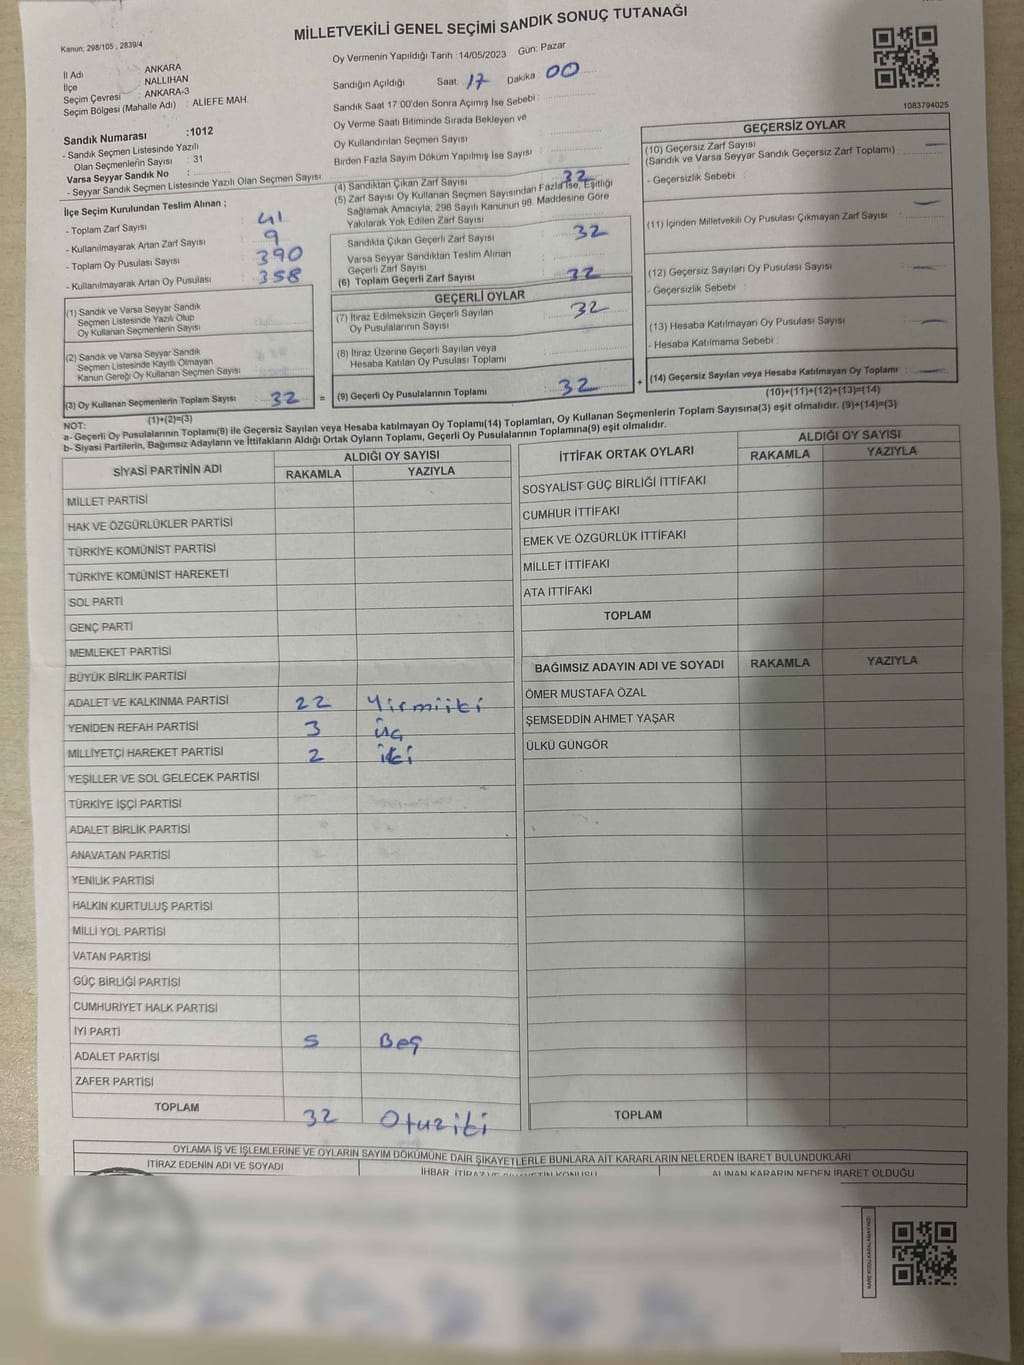 MİLLETVEKİLİ GENEL SEÇİMİ SANDIK SONUÇ TUTANAĞI
Kanun: 298/105 , 2839/4
İl Adı : ANKARA
İlçe : NALLIHAN
Seçim Çevresi : ANKARA-3
Seçim Bölgesi (Mahalle Adı) : ALİEFE MAH.
Sandık Numarası :1012
- Sandık Seçmen Listesinde Yazılı
Olan Seçmenlerin Sayısı : 31
Varsa Seyyar Sandık No :
- Seyyar Sandık Seçmen Listesinde Yazılı Olan Seçmen Sayısı :
Oy Vermenin Yapıldığı Tarih :14/05/2023 Gün: Pazar
Sandığın Açıldığı Saat: 17 Dakika : 00
Sandık Saat 17:00'den Sonra Açımış İse Sebebi :
Oy Verme Saati Bitiminde Sırada Bekleyen ve
Oy Kullandırılan Seçmen Sayısı :
Birden Fazla Sayım Döküm Yapılmış İse Sayısı :
1083794025
İlçe Seçim Kurulundan Teslim Alınan ;
- Toplam Zarf Sayısı : 41
- Kullanılmayarak Artan Zarf Sayısı : 9
- Toplam Oy Pusulası Sayısı : 390
- Kullanılmayarak Artan Oy Pusulası : 358
(1) Sandık ve Varsa Seyyar Sandık
Seçmen Listesinde Yazılı Olup
Oy Kullanan Seçmenlerin Sayısı :
(2) Sandık ve Varsa Seyyar Sandık
Seçmen Listesinde Kayıtlı Olmayan
Kanun Gereği Oy Kullanan Seçmen Sayısı :
(3) Oy Kullanan Seçmenlerin Toplam Sayısı : 32
(1)+(2)=(3)
(4) Sandıktan Çıkan Zarf Sayısı : 32
(5) Zarf Sayısı Oy Kullanan Seçmen Sayısından Fazla İse, Eşitliği
Sağlamak Amacıyla; 298 Sayılı Kanunun 98. Maddesine Göre
Yakılarak Yok Edilen Zarf Sayısı :
Sandıkta Çıkan Geçerli Zarf Sayısı : 32
Varsa Seyyar Sandıktan Teslim Alınan
Geçerli Zarf Sayısı :
(6) Toplam Geçerli Zarf Sayısı : 32
GEÇERLİ OYLAR
(7) İtiraz Edilmeksizin Geçerli Sayılan
Oy Pusulalarının Sayısı : 32
(8) İtiraz Üzerine Geçerli Sayılan veya
Hesaba Katılan Oy Pusulası Toplamı :
= (9) Geçerli Oy Pusulalarının Toplamı : 32 +
GEÇERSİZ OYLAR
(10) Geçersiz Zarf Sayısı : —
(Sandık ve Varsa Seyyar Sandık Geçersiz Zarf Toplamı)
- Geçersizlik Sebebi :
(11) İçinden Milletvekili Oy Pusulası Çıkmayan Zarf Sayısı : —
(12) Geçersiz Sayılan Oy Pusulası Sayısı : —
- Geçersizlik Sebebi :
(13) Hesaba Katılmayan Oy Pusulası Sayısı : —
- Hesaba Katılmama Sebebi :
(14) Geçersiz Sayılan veya Hesaba Katılmayan Oy Toplamı : —
(10)+(11)+(12)+(13)=(14)
NOT:
a- Geçerli Oy Pusulalarının Toplamı(9) ile Geçersiz Sayılan veya Hesaba katılmayan Oy Toplamı(14) Toplamları, Oy Kullanan Seçmenlerin Toplam Sayısına(3) eşit olmalıdır. (9)+(14)=(3)
b- Siyasi Partilerin, Bağımsız Adayların ve İttifakların Aldığı Ortak Oyların Toplamı, Geçerli Oy Pusulalarının Toplamına(9) eşit olmalıdır.
SİYASİ PARTİNİN ADI ALDIĞI OY SAYISI
RAKAMLA YAZIYLA
MİLLET PARTİSİ
HAK VE ÖZGÜRLÜKLER PARTİSİ
TÜRKİYE KOMÜNİST PARTİSİ
TÜRKİYE KOMÜNİST HAREKETİ
SOL PARTİ
GENÇ PARTİ
MEMLEKET PARTİSİ
BÜYÜK BİRLİK PARTİSİ
ADALET VE KALKINMA PARTİSİ 22 Yirmiiki
YENİDEN REFAH PARTİSİ 3 üç
MİLLİYETÇİ HAREKET PARTİSİ 2 iki
YEŞİLLER VE SOL GELECEK PARTİSİ
TÜRKİYE İŞÇİ PARTİSİ
ADALET BİRLİK PARTİSİ
ANAVATAN PARTİSİ
YENİLİK PARTİSİ
HALKIN KURTULUŞ PARTİSİ
MİLLİ YOL PARTİSİ
VATAN PARTİSİ
GÜÇ BİRLİĞİ PARTİSİ
CUMHURİYET HALK PARTİSİ
İYİ PARTİ 5 Beş
ADALET PARTİSİ
ZAFER PARTİSİ
TOPLAM 32 Otuziki
İTTİFAK ORTAK OYLARI ALDIĞI OY SAYISI
RAKAMLA YAZIYLA
SOSYALİST GÜÇ BİRLİĞİ İTTİFAKI
CUMHUR İTTİFAKI
EMEK VE ÖZGÜRLÜK İTTİFAKI
MİLLET İTTİFAKI
ATA İTTİFAKI
TOPLAM
BAĞIMSIZ ADAYIN ADI VE SOYADI RAKAMLA YAZIYLA
ÖMER MUSTAFA ÖZAL
ŞEMSEDDİN AHMET YAŞAR
ÜLKÜ GÜNGÖR
TOPLAM
OYLAMA İŞ VE İŞLEMLERİNE VE OYLARIN SAYIM DÖKÜMÜNE DAİR ŞİKAYETLERLE BUNLARA AİT KARARLARIN NELERDEN İBARET BULUNDUKLARI
İTİRAZ EDENİN ADI VE SOYADI
ALINAN KARARIN NEDEN İBARET OLDUĞU